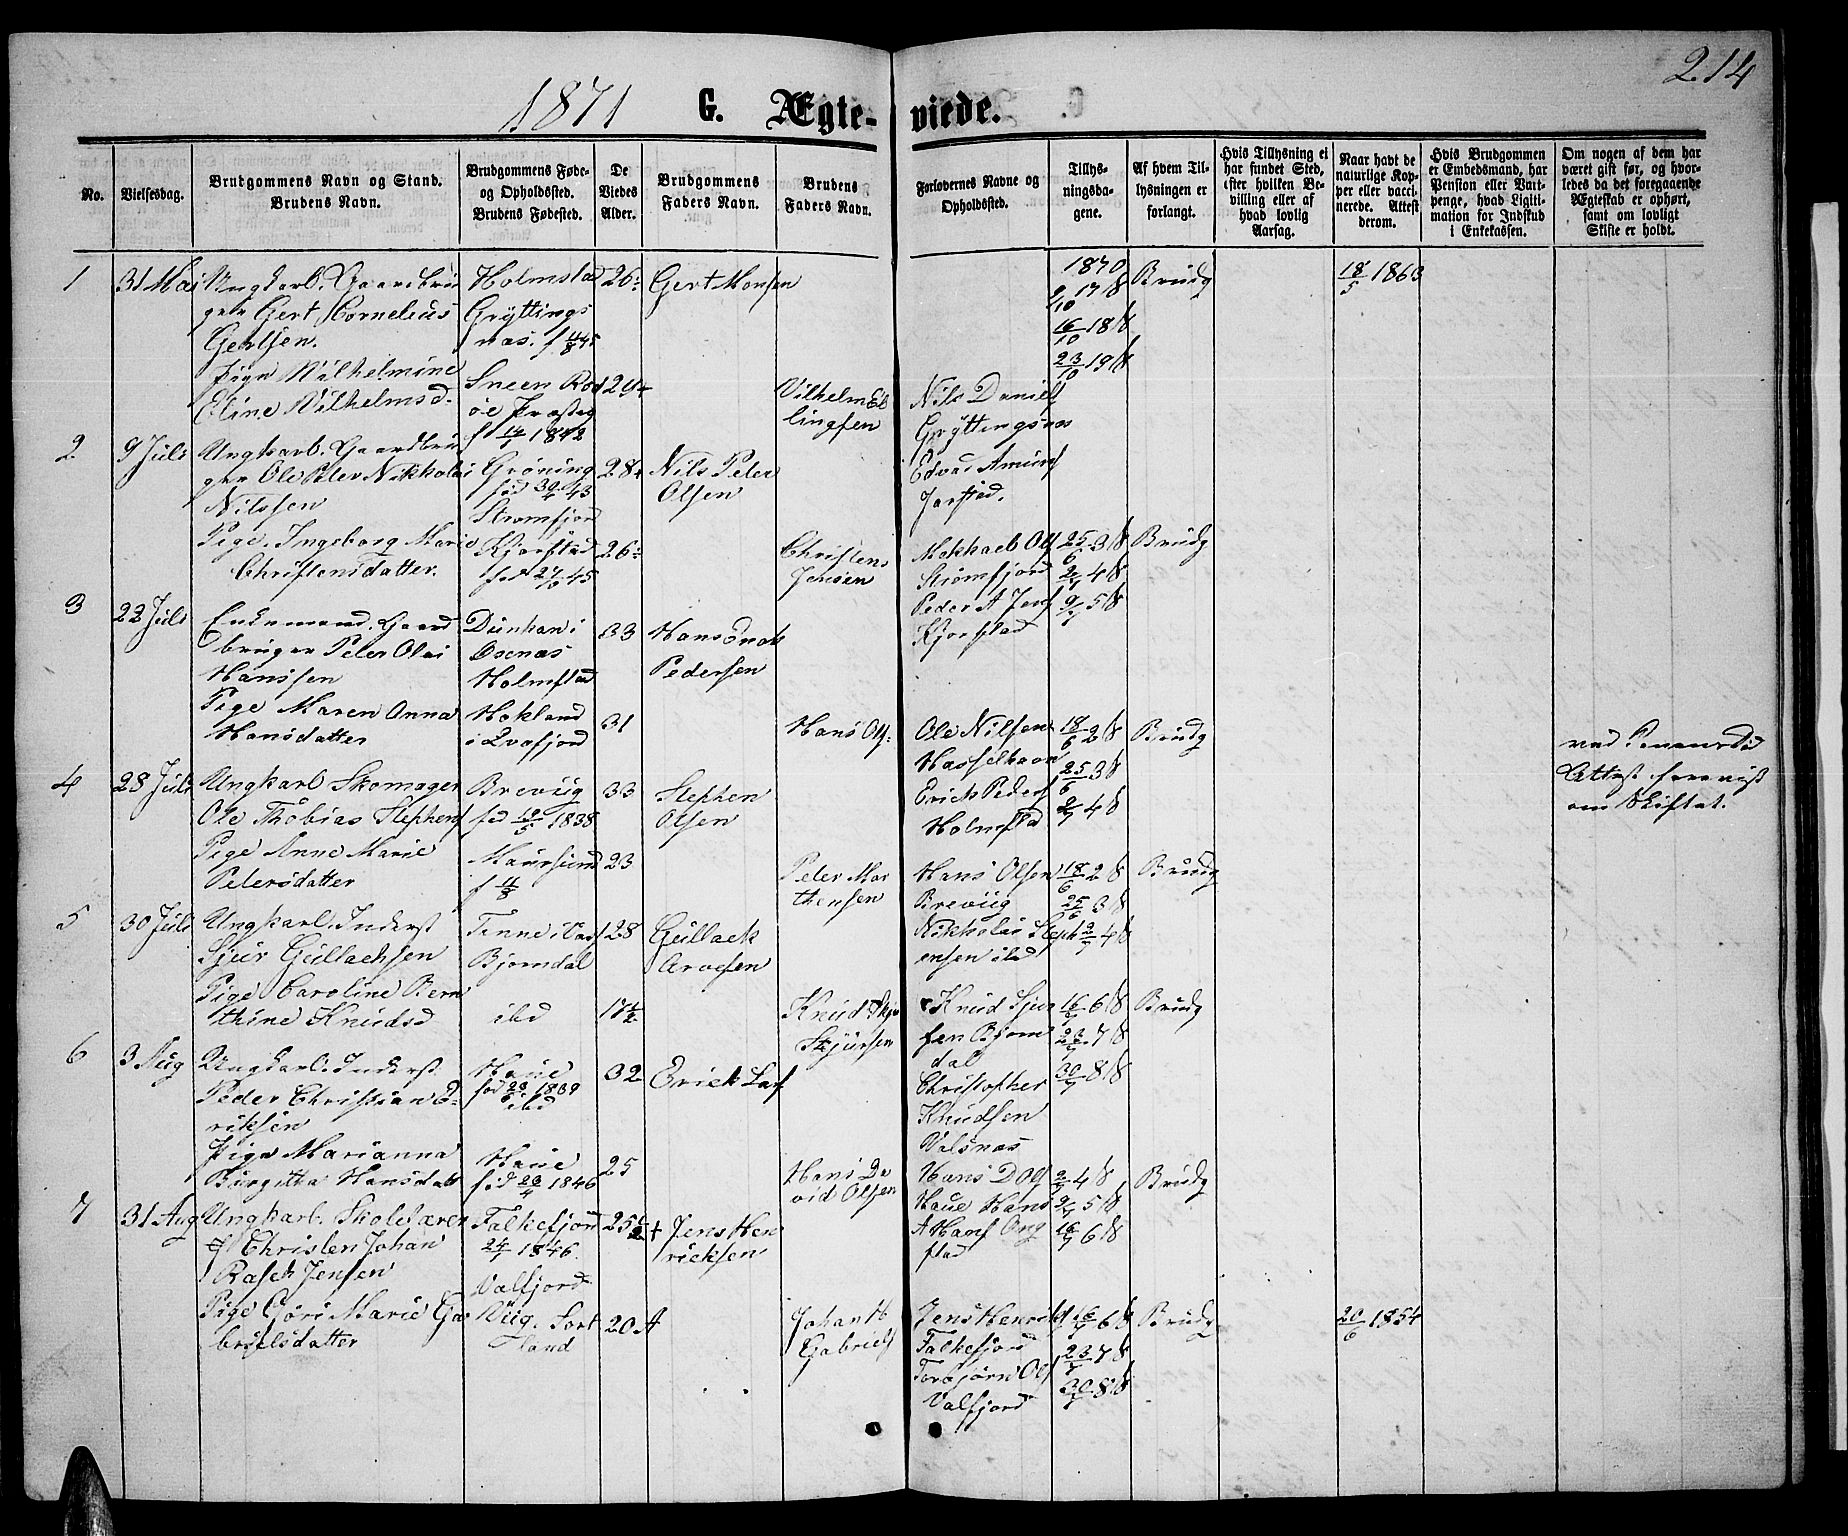 214
1871
G. Ægte-viede.
No.
Vielsesdag.
Brudgommens Navn og Stand.
Brudens Navn.
Brudgommens Føde-
og Opholdssted.
Brudens Fødested.
De
Viedes
Alder.
Brudgommens
Faders Navn.
Brudens
Faders Navn.
Forlovernes Navne og
Opholdssted.
Tillys-
ningsda-
gene.
Af hvem Til-
lysningen er
forlangt.
Hvis Tillysning ei
har fundet Sted,
efter hvilken Be-
villing eller af
hvad lovlig
Aarsag.
Naar havt de
naturlige Kop-
per eller vacci-
nerede. Attest
derom.
Hvis Brudgommen
er Embedsmand, har
Pension eller Vart-
penge, hvad Ligiti-
mation for Indskud
i Enkekassen.
Om nogen af dem har
været gift før, og hvor-
ledes da det foregaaende
Ægteskab er ophørt,
samt om lovligt
Skifte er holdt.
1
31 Mai
Ungkarl. Gaardbru
ger Gert Cornelius
Gertsen.
Pige Wilhelmine
Eline Wilhelmsd.
Holmstad
Gryttings
næs. f. 11/8 45
Sneen Rod
øe Præsteg
f 14/1 1842
26
29
Gert Monsen
Vilhelm El
lingsen
Nils Daniels
Gryttingsnæs
Edvad Amunds
Jarstad.
1870
9/10 17 S
16/10 18 S
23/10 19 S
Brudg
18/5 1863
2
9 Juli
Ungkarl. Gaardbru
ger Ole Peter Nikkolai
Nilssen
Pige. Ingeborg Marie
Christensdatter.
Grøning
fød 30/4 43
Strømfjord
Kjørstad
26
28
Nils Peter
Olsen
Christens
Jensen
Mekkael Ols
Strømfjord
Peder A Jens
Kjørstad
25/6 3 S
2/7 4 S
9/7 5 S
Brudg
3
22 Juli
Enkemand. Gaard
bruger Peter Olai
Hanssen
Pige Maren Anna
Hansdatter
Dunkan i
Øsenæs
Holmstad
Hokland
i Qvæfjord
33
31
Pedersen
Hans Ols
Ole Nilsen
Hasselhavn
Erick Peders
Holmstad
18/6 2 S
25/6 3 S
2/7 4 S
Brudg
ved Konens Død
Attest forevist
om Skiftet.
4
28 Juli
Ungkarl Skomager
Ole Thobias Stephens
Pige Anne Marie
Petersdatter
Breviig
fød 10/5 1838
Maursund
33
23
Stephen
Olsen
Peter Mar
thensen
Hans Olsen
Breviig
Nikkolai Steph
ensen ibd
18/6 2 S
25/6 3 S
2/7 4 S
Brudg
5
30 Juli
Ungkarl. Inderst
Sjur Gullachsen
Pige Caroline Bern
thine Knudsd
Bjørndal
ibd
28
17½
Gullack
Arvesen
Knud
Skjursen
Knud Sjur
sen Bjørn
dal
Christopher
Knudsen
Valsnæs
16/7 6 S
23/7 7 S
30/7 8 S
Brudg
6
3 Aug
Ungkarl. Inderst
Peder Christian E-
riksen
Pige Marianna
Birgitta Hansdatt
Haue
ibd
Haue
fød 23/4 1846
32
25
Erick Lars
Hans Da
vid Olsen
Hans D Ols
Haue Hans
A Hans Ong
stad
2/7 4 S
9/7 5 S
16/7 6 S
Brudg
7
31 Aug
Ungkarl. Skolelærer
Christen Johan
Rasch Jensen
Pige Gjøri Marie Ga
brielsdatter
Falkefjord
24/1 1846
Valfjord
Viig. Sort
land
25½
20
Jens Hen
ricksen
Johan H
Gabriels
Jens Henriks
Falkefjord
Torbjørn Ols
Valfjord
16/7 6 S
23/7 7 S
30/7 8 S
Brudg
20/6 1854